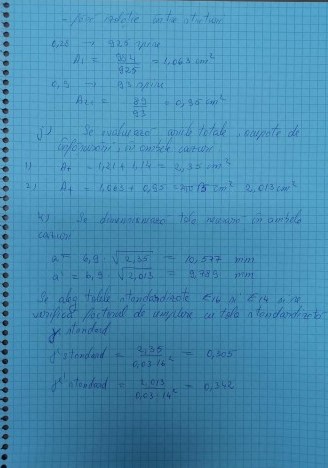 - fără izolație între straturi
0,25 → 925 spire
A₁ = 984/925 = 1,063 cm²
0,9 → 93 spire
A₂ = 89/93 = 0,95 cm²
j) Se evaluează ariile totale, ocupate de
înfășurări, în ambele cazuri
1) A+ = 1,21 + 1,14 = 2,35 cm²
2) A+ = 1,063 + 0,95 = cm² 2,013 cm²
k) Se dimensionează tola necesară în ambele
cazuri
a = 6,9 · √2,35 = 10,577 mm
a' = 6,9 · √2,013 = 9,789 mm
Se aleg tolele standardizate E16 și E14 și se
verifică factorul de umplere cu tola standardizată
γ standard
γ' standard = 2,35/0,03·16² = 0,305
γ'' standard = 2,013/0,03·14² = 0,342